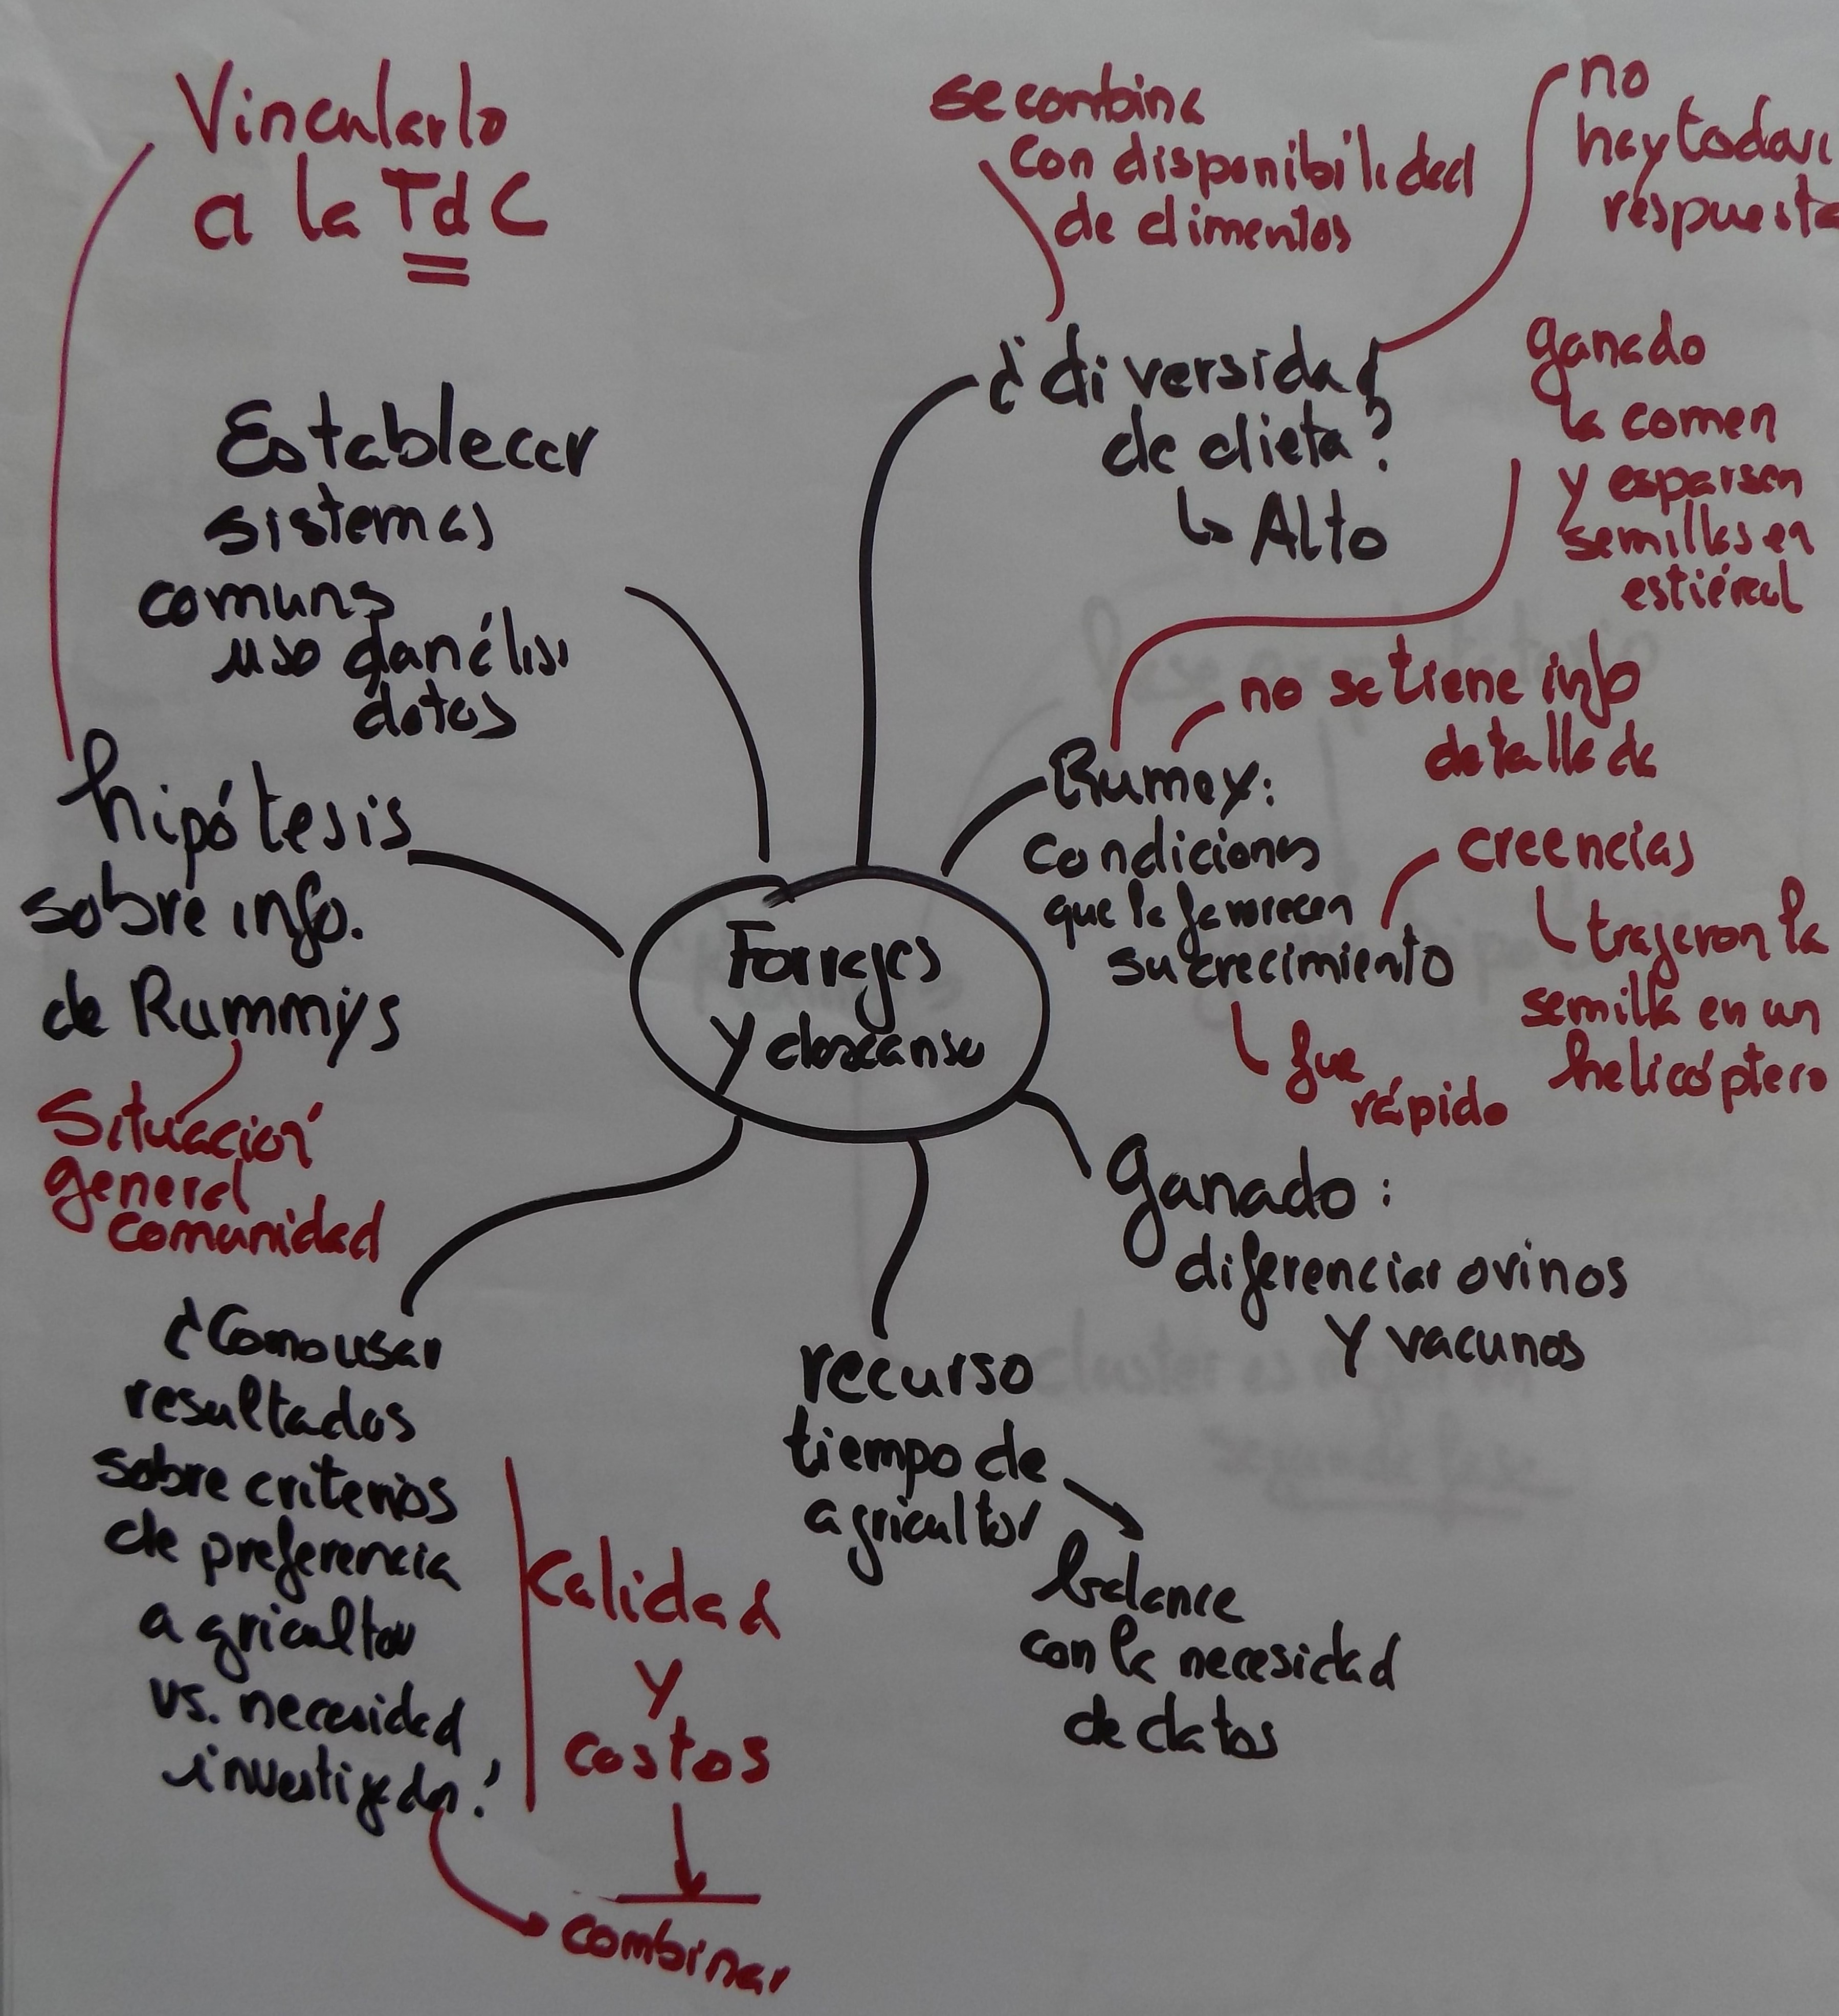 Vincularlo
a la TdC
se combina
con disponibilidad
de alimentos
no
hay todaví
respuesta
¿diversidad
de dieta?
↳ Alto
ganado
la comen
y esparsen
semillas en
estiércol
Establecer
sistemas
comuns
uso d análisis
datos
no se tiene info
detallada
Rumex:
Condiciones
que la favorecen
su crecimiento
creencias
trajeron la
semilla en un
helicóptero
fue
rápido
hipótesis
sobre info.
de Rummys
Situación
general
comunidad
Forrajes
y descanso
Ganado:
diferenciar ovinos
y vacunos
recurso
tiempo de
agricultor
balance
con la necesidad
de datos
¿Como usar
resultados
sobre criterios
de preferencia
agricultor
vs. necesidad
investigador?
Calidad
y
costos
combinar